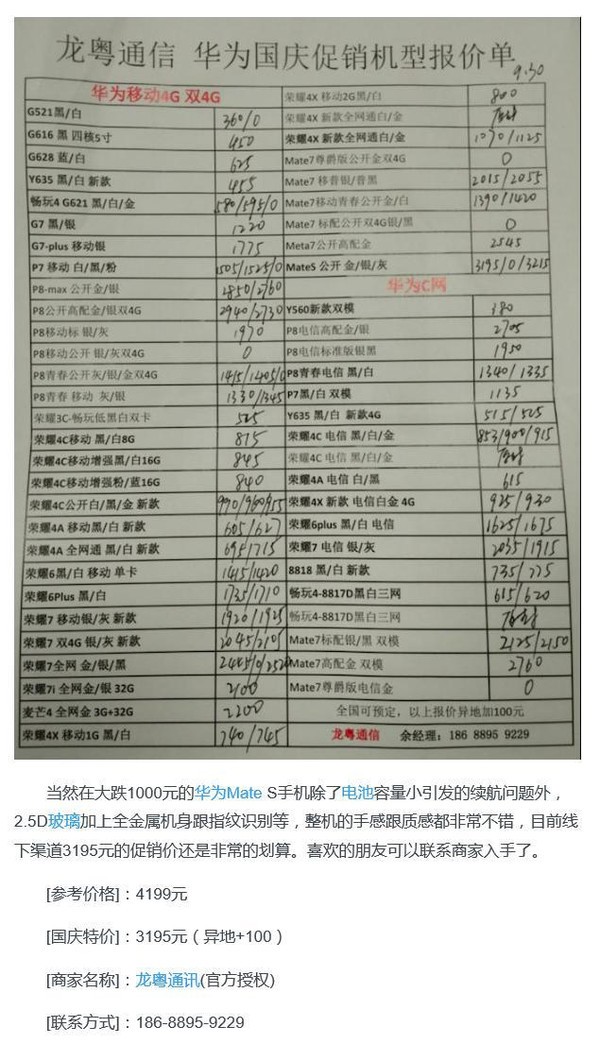 龙粤通信 华为国庆促销机型报价单
9.30
华为移动4G 双4G
G521黑/白 360/0
G616 黑 四核5寸 450
G628 蓝/白 625
Y635 黑/白 新款 455
畅玩4 G621 黑/白/金 580/595/0
G7 黑/银 1220
G7-plus 移动银 1775
P7 移动 白/黑/粉 1505/1525/0
P8-max 公开金/银 2850/2760
P8公开高配金/银双4G 2940/2730
P8移动标 银/灰 1970
P8移动公开 银/灰双4G 0
P8青春公开灰/银/金双4G 1415/1405/0
P8青春 移动 灰/银 1330/1345
荣耀3C-畅玩低黑白双卡 525
荣耀4C移动 黑/白8G 815
荣耀4C移动增强黑/白16G 845
荣耀4C移动增强粉/蓝16G 840
荣耀4C公开白/黑/金 新款 990/960/955
荣耀4A 移动黑/白 新款 605/627
荣耀4A 全网通 黑/白 新款 695/715
荣耀6黑/白 移动 单卡 1415/1420
荣耀6Plus 黑/白 1735/1710
荣耀7 移动银/灰 新款 1920/1925
荣耀7 双4G 银/灰 新款 2045/2105
荣耀7全网 金/银/黑 2445/0/2520
荣耀7i 全网金/银 32G 2100
麦芒4 全网金 3G+32G 2200
荣耀4X 移动1G 黑/白 740/745
荣耀4X 移动2G黑/白 800
荣耀4X 新款全网通白/金
荣耀4X 新款全网通白/金 1070/1125
Mate7尊爵版公开金双4G 0
Mate7 移普银/普黑 2015/2055
Mate7移动青春公开金/白 1390/1420
Mate7 标配公开双4G银/黑 0
Meta7公开高配金 2545
MateS 公开 金/银/灰 3195/0/3215
华为C网
Y560新款双模 380
P8电信高配金/银 2705
P8电信标准版银黑 1950
P8青春电信 黑/白 1340/1335
P7黑/白 双模 1135
Y635 黑/白 新款4G 515/525
荣耀4C 电信 黑/白/金 853/900/915
荣耀4C 电信 黑/白/金
荣耀4A 电信 白/黑 615
荣耀4X 新款 电信白金 4G 925/930
荣耀6plus 黑/白 电信 1625/1675
荣耀7 电信 银/灰 2035/1915
8818 黑/白 新款 735/775
畅玩4-8817D黑白三网 615/620
畅玩4-8817D黑白三网
Mate7标配银/黑 双模 2125/2150
Mate7高配金 双模 2760
Mate7尊爵版电信金 0
全国可预定，以上报价异地加100元
龙粤通信 余经理：186 8895 9229
当然在大跌1000元的华为Mate S手机除了电池容量小引发的续航问题外，
2.5D玻璃加上全金属机身跟指纹识别等，整机的手感跟质感都非常不错，目前线
下渠道3195元的促销价还是非常的划算。喜欢的朋友可以联系商家入手了。
[参考价格]：4199元
[国庆特价]：3195元（异地+100）
[商家名称]：龙粤通讯(官方授权)
[联系方式]：186-8895-9229